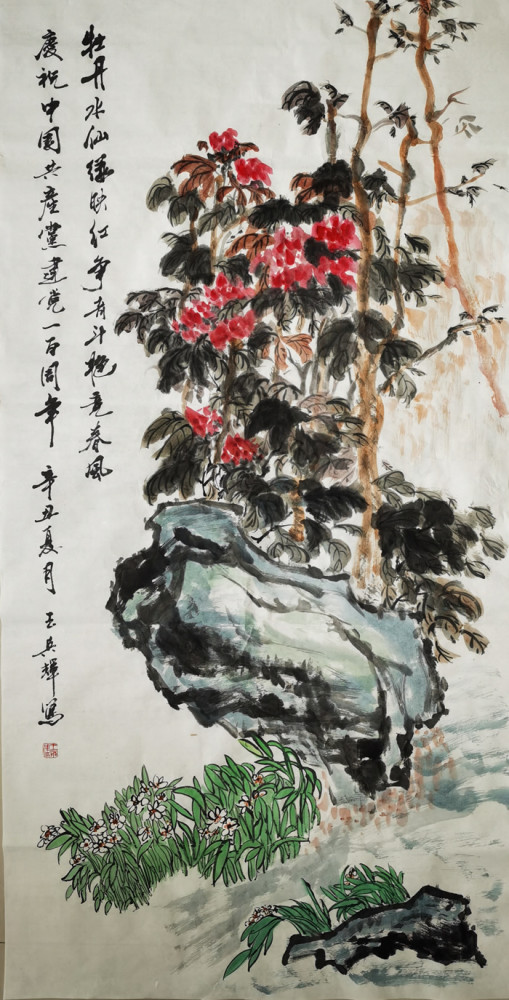 牡丹水仙绿映红争奇斗艳竞春風
慶祝中国共產黨建党一百周年 辛丑夏月 王兵輝寫